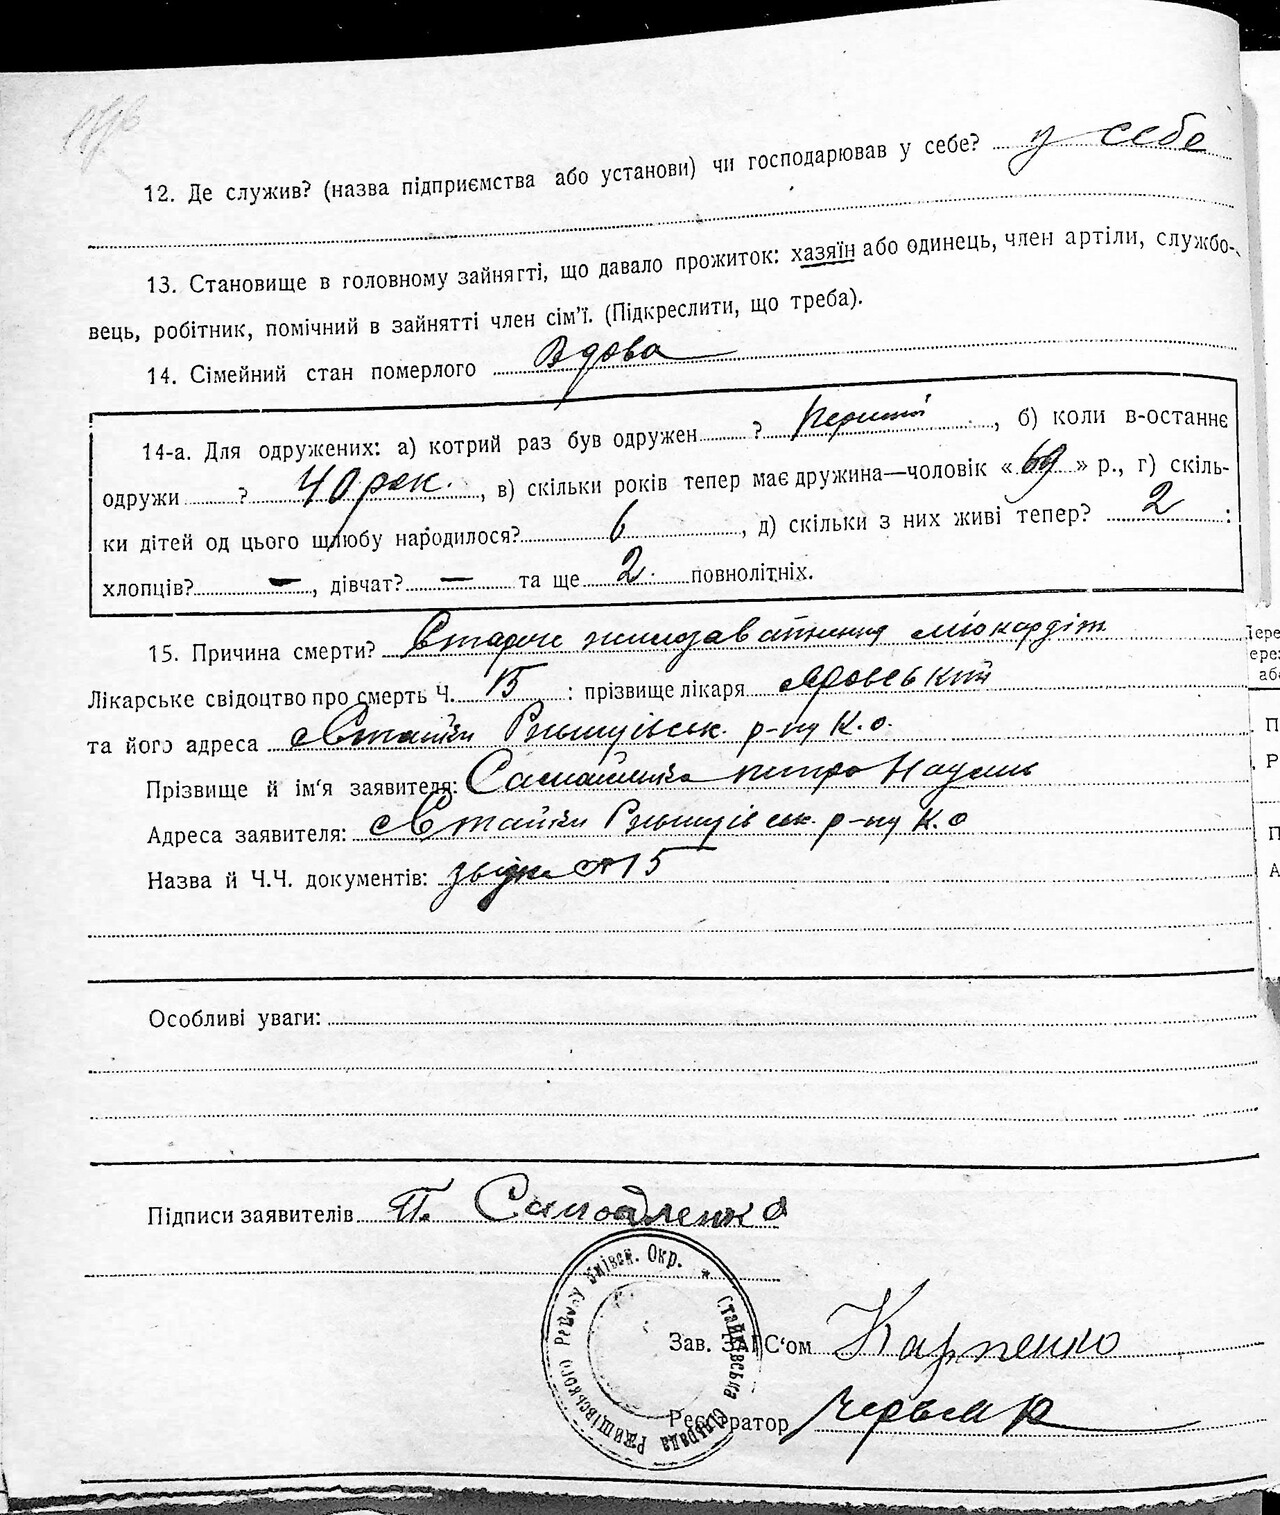 12. Де служив? (назва підприємства або установи) чи господарював у себе? у себе
13. Становище в головному зайнятті, що давало прожиток: хазяїн або одинець, член артіли, службо-
вець, робітник, помічний в зайнятті член сім'ї. (Підкреслити, що треба).
14. Сімейний стан померлого Вдова
14-а. Для одружених: а) котрий раз був одружен ? перший, б) коли в-останнє
одружи ? 40 рок., в) скільки років тепер має дружина—чоловік « 69 » р., г) скіль-
ки дітей од цього шлюбу народилося? 6, д) скільки з них живі тепер? 2 :
хлопців? —, дівчат? — та ще 2 повнолітніх.
15. Причина смерти? міокардіт
Лікарське свідоцтво про смерть Ч. 15 : прізвище лікаря Яровський
та його адреса с Стайки Ржищівськ. р-ну К.о.
Прізвище й ім'я заявителя: Петро
Адреса заявителя: с Стайки Ржищівськ. р-ну К.о
Назва й Ч.Ч. документів: 15
Особливі уваги:
Підписи заявителів П.
Стайківська сільрада Ржищівського Району Київск. Окр. *
Зав. ЗАГС'ом Карпенко
Реєстратор